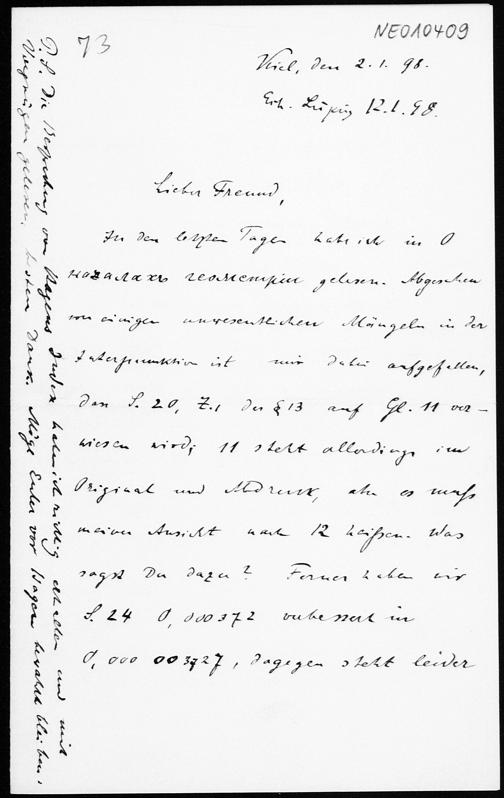 73
NE010409
Kiel, den 2.1.98.
Erh. Leipzig 12.1.98.
Lieber Freund,
In den letzten Tagen habe ich in O
началахъ геометріи gelesen. Abgesehen
von einigen unwesentlichen Mängeln in der
Interpunktion ist mir dabei aufgefallen,
dass S. 20, Z. 1 des § 13 auf Gl. 11 ver-
wiesen wird; 11 steht allerdings im
Original und Abdruck, aber es muss
meiner Ansicht nach 12 heißen. Was
sagst Du dazu? Ferner haben wir
S. 24 0,000372 verbessert in
0,000 003727, dagegen steht leider
P.S. Die Besprechung von Hagens Index habe ich richtig erhalten und mit
Vergnügen gelesen, besten Dank. Möge Euler vor Hagen bewahrt bleiben!